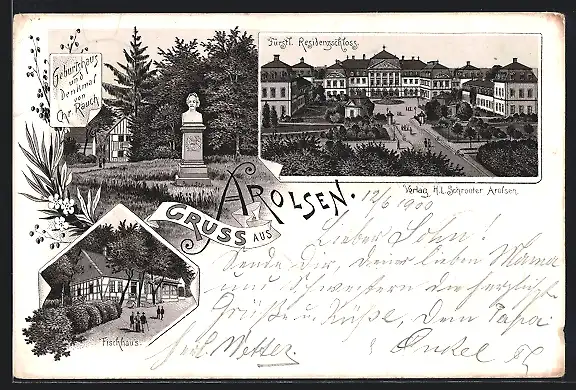 Geburtshaus
und
Denkmal
von
Chr. Rauch
Fürstl. Residenzschloss.
Verlag H.L. Schröuter Arolsen.
GRUSS AUS AROLSEN.
Fischhaus.
12/6 1900
Lieber Sohn!
Sende Dir, deiner lieben Mama
und Schwestern die herzlichst
Grüße u Küße, Dein Papa
Onkel